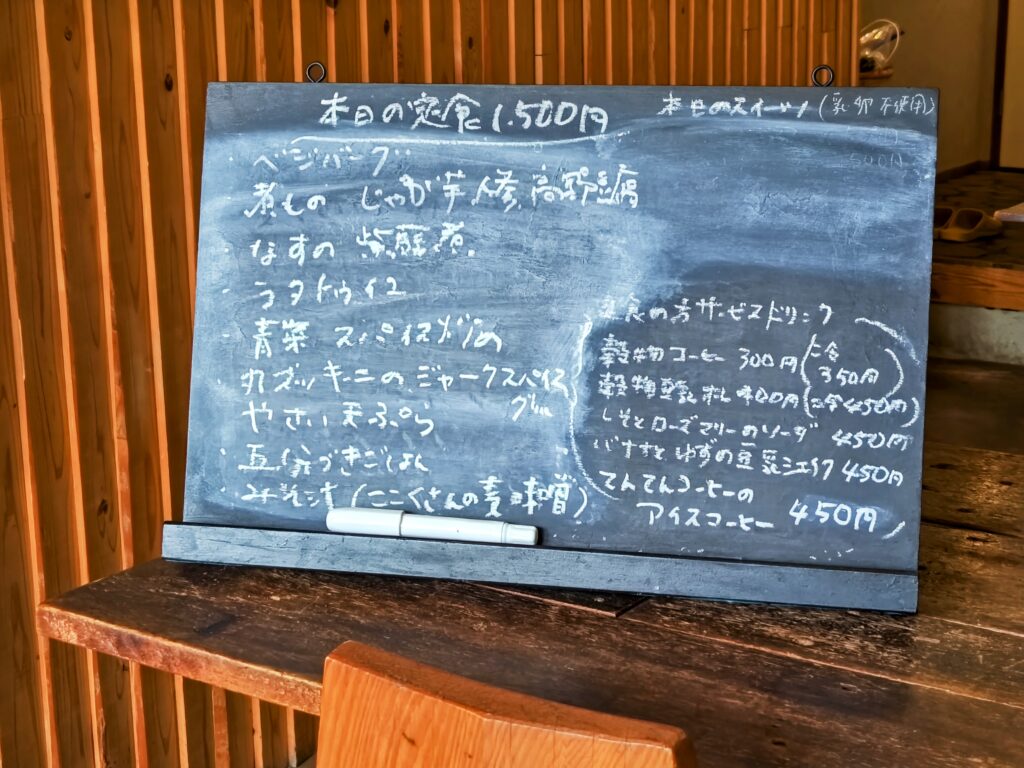 本日の定食 1.500円
・ベジバーグ
煮もの じゃが芋 人参 高野豆腐
・なすの 紫蘇煮
・ラタトゥイユ
・青菜
丸ズッキーニのジャークスパイス
グリル
やさい天ぷら
・五分づきごはん
・みそ汁 (にこくさんの麦味噌)
本日のスイーツ (乳 卵 不使用)
500円
定食の方サービスドリンク
穀物コーヒー 300円 (冷
350円
穀物豆乳オレ 400円 (冷450円)
しそとローズマリーのソーダ 450円
ゆずの豆乳シェイク 450円
てんてんコーヒーの
アイスコーヒー 450円